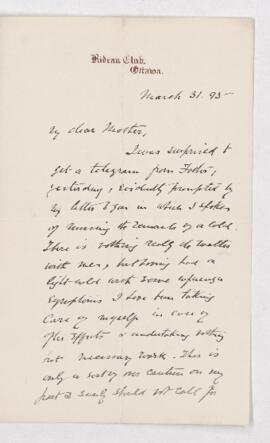 Rideau Club,
Ottawa.
March 31. 95
My dear Mother,
I was surprised to
get a telegram from Father,
yesterday, evidently prompted by
my letter to in which I spoke
of nursing the remains of a cold.
There is nothing really the matter
with me, but having had a
light cold with some
symptoms I have been taking
care of myself in case of
after effects & undertaking nothing
but necessary work. This is
only a sort of over caution on my
part & surely should not call for